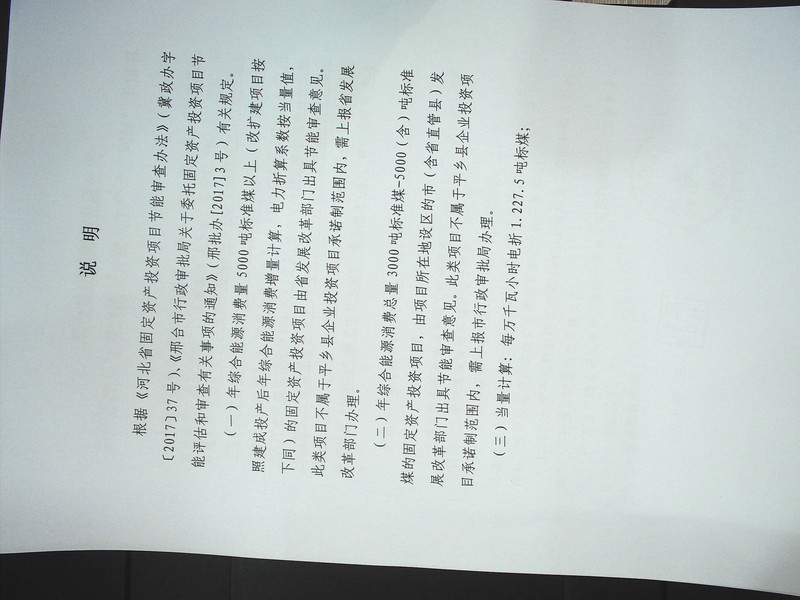 说 明
根据《河北省固定资产投资项目节能审查办法》(冀政办字
〔2017〕37号)、《邢台市行政审批局关于委托固定资产投资项目节
能评估和审查有关事项的通知》(邢批办[2017]3号)有关规定。
(一)年综合能源消费量 5000 吨标准煤以上(改扩建项目按
照建成投产后年综合能源消费增量计算,电力折算系数按当量值,
下同)的固定资产投资项目由省发展改革部门出具节能审查意见。
此类项目不属于平乡县企业投资项目承诺制范围内,需上报省发展
改革部门办理。
(二)年综合能源消费总量 3000 吨标准煤-5000(含)吨标准
煤的固定资产投资项目,由项目所在地设区的市(含省直管县)发
展改革部门出具节能审查意见。此类项目不属于平乡县企业投资项
目承诺制范围内,需上报市行政审批局办理。
(三)当量计算:每万千瓦小时电折1.227.5吨标煤;